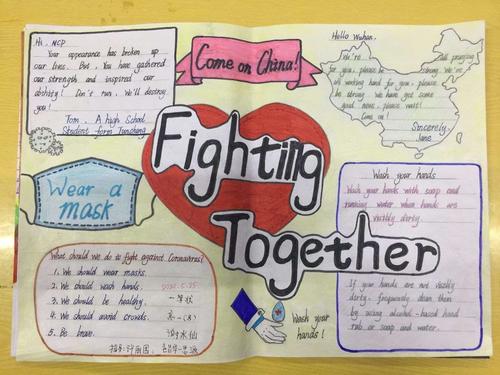 Hi, NCP
Your appearance has broken up
our lives. But, You have gathered
our strength and inspired our
ability! Don't run, We'll destroy
you!
Tom. A high School
Student form Tunchang
Come on China!
Hello Wuhan,
We're all praying
for you, please be strong. We're
working hard for you, please
be strong. We have got some
good news, please wait!
Come on!
Sincerely,
Jane
Fighting
Together
Wear a
mask
Wash your hands
Wash your hands with soap and
running water when hands are
visibly dirty.
If your hands are not visibly
dirty, frequently clean them
by using alcohol-based hand
rub or soap and water.
What should we do to fight against Coronavirus?
1. We should wear masks.
2. We should wash hands.
3. We should be healthy.
4. We should avoid crowds.
5. Be brave.
一等奖
Wash your
hands!